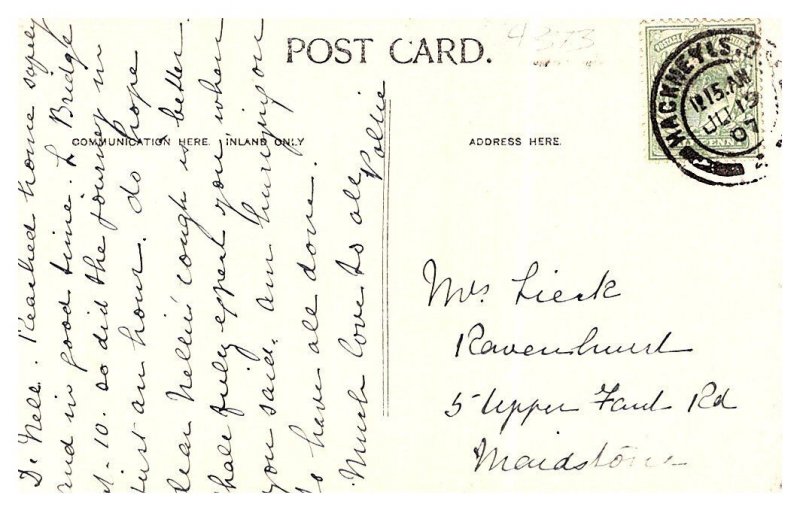 POST CARD.
4373
COMMUNICATION HERE. INLAND ONLY
ADDRESS HERE.
HACKNEY
12 15. AM
07
D. Nell. Reached home safely
and in good time. L Bridge
at. 10. so did the journey in
just an hour. do hope
dear Nellie' cough is better.
shall fully expect you when
you said. am hurrying on
to have all done.
Much love to all
Pollie
Mrs Lieck
Ravenhurst
5 Upper Fant Rd
Maidstone